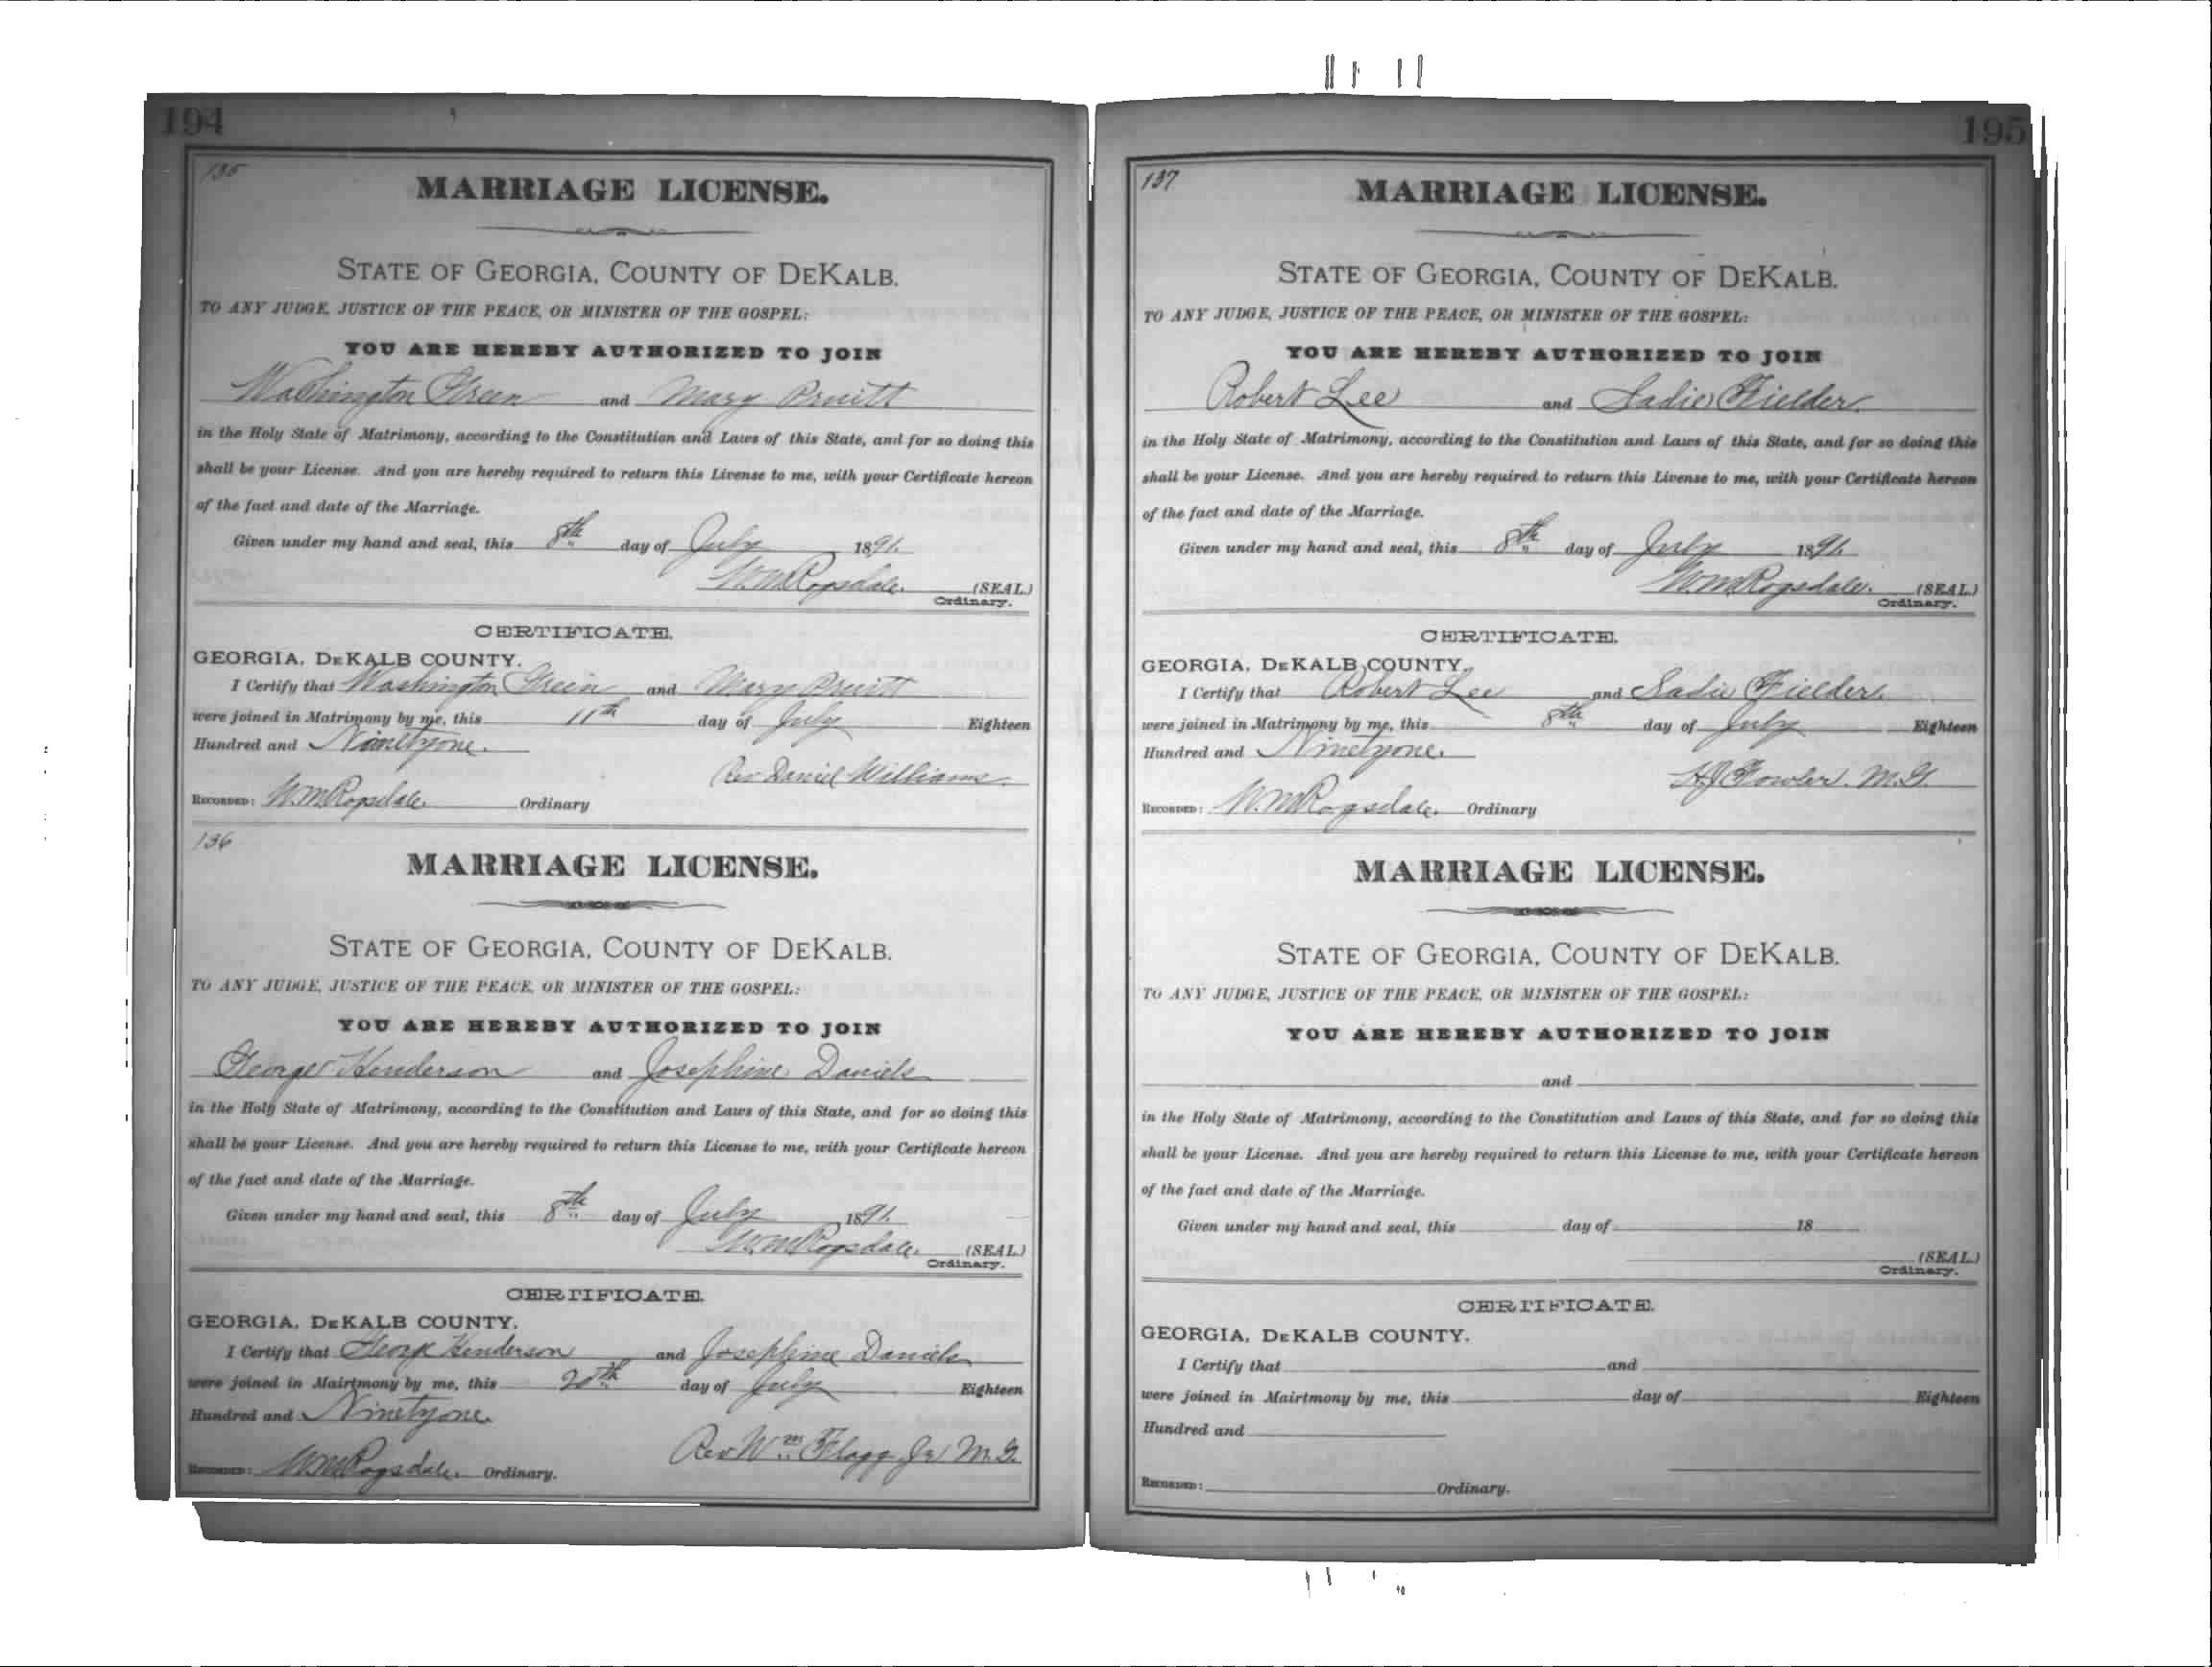 194
135
MARRIAGE LICENSE.
STATE OF GEORGIA, COUNTY OF DEKALB.
TO ANY JUDGE, JUSTICE OF THE PEACE, OR MINISTER OF THE GOSPEL:
YOU ARE HEREBY AUTHORIZED TO JOIN
Washington Green and Mary Pruitt
in the Holy State of Matrimony, according to the Constitution and Laws of this State, and for so doing this
shall be your License. And you are hereby required to return this License to me, with your Certificate hereon
of the fact and date of the Marriage.
Given under my hand and seal, this 8th day of July 1891.
W.M Ragsdale. (SEAL)
Ordinary.
CERTIFICATE.
GEORGIA, DEKALB COUNTY.
I Certify that Washington Green and Mary Pruitt
were joined in Matrimony by me, this 11th day of July Eighteen
Hundred and Ninetyone.
Rev Daniel Williams.
RECORDED: W.M Ragsdale. Ordinary
136
MARRIAGE LICENSE.
STATE OF GEORGIA, COUNTY OF DEKALB.
TO ANY JUDGE, JUSTICE OF THE PEACE, OR MINISTER OF THE GOSPEL:
YOU ARE HEREBY AUTHORIZED TO JOIN
George Henderson and Josephine Daniels
in the Holy State of Matrimony, according to the Constitution and Laws of this State, and for so doing this
shall be your License. And you are hereby required to return this License to me, with your Certificate hereon
of the fact and date of the Marriage.
Given under my hand and seal, this 8th day of July 1891.
W.M Ragsdale. (SEAL)
Ordinary.
CERTIFICATE.
GEORGIA, DEKALB COUNTY.
I Certify that George Henderson and Josephine Daniels
were joined in Mairtmony by me, this 20th day of July Eighteen
Hundred and Ninetyone.
Rev Wm Flagg Jr M.G.
RECORDED: W.M Ragsdale. Ordinary.
195
137
MARRIAGE LICENSE.
STATE OF GEORGIA, COUNTY OF DEKALB.
TO ANY JUDGE, JUSTICE OF THE PEACE, OR MINISTER OF THE GOSPEL:
YOU ARE HEREBY AUTHORIZED TO JOIN
Robert Lee and Sadie Fielder.
in the Holy State of Matrimony, according to the Constitution and Laws of this State, and for so doing this
shall be your License. And you are hereby required to return this License to me, with your Certificate hereon
of the fact and date of the Marriage.
Given under my hand and seal, this 8th day of July 1891.
W.M Ragsdale. (SEAL)
Ordinary.
CERTIFICATE.
GEORGIA, DEKALB COUNTY.
I Certify that Robert Lee and Sadie Fielder.
were joined in Matrimony by me, this 8th day of July Eighteen
Hundred and Ninetyone.
Fowler. M.G.
RECORDED: W.M Ragsdale. Ordinary
MARRIAGE LICENSE.
STATE OF GEORGIA, COUNTY OF DEKALB.
TO ANY JUDGE, JUSTICE OF THE PEACE, OR MINISTER OF THE GOSPEL:
YOU ARE HEREBY AUTHORIZED TO JOIN
and
in the Holy State of Matrimony, according to the Constitution and Laws of this State, and for so doing this
shall be your License. And you are hereby required to return this License to me, with your Certificate hereon
of the fact and date of the Marriage.
Given under my hand and seal, this day of 18
(SEAL)
Ordinary.
CERTIFICATE.
GEORGIA, DEKALB COUNTY.
I Certify that and
were joined in Mairtmony by me, this day of Eighteen
Hundred and
RECORDED: Ordinary.